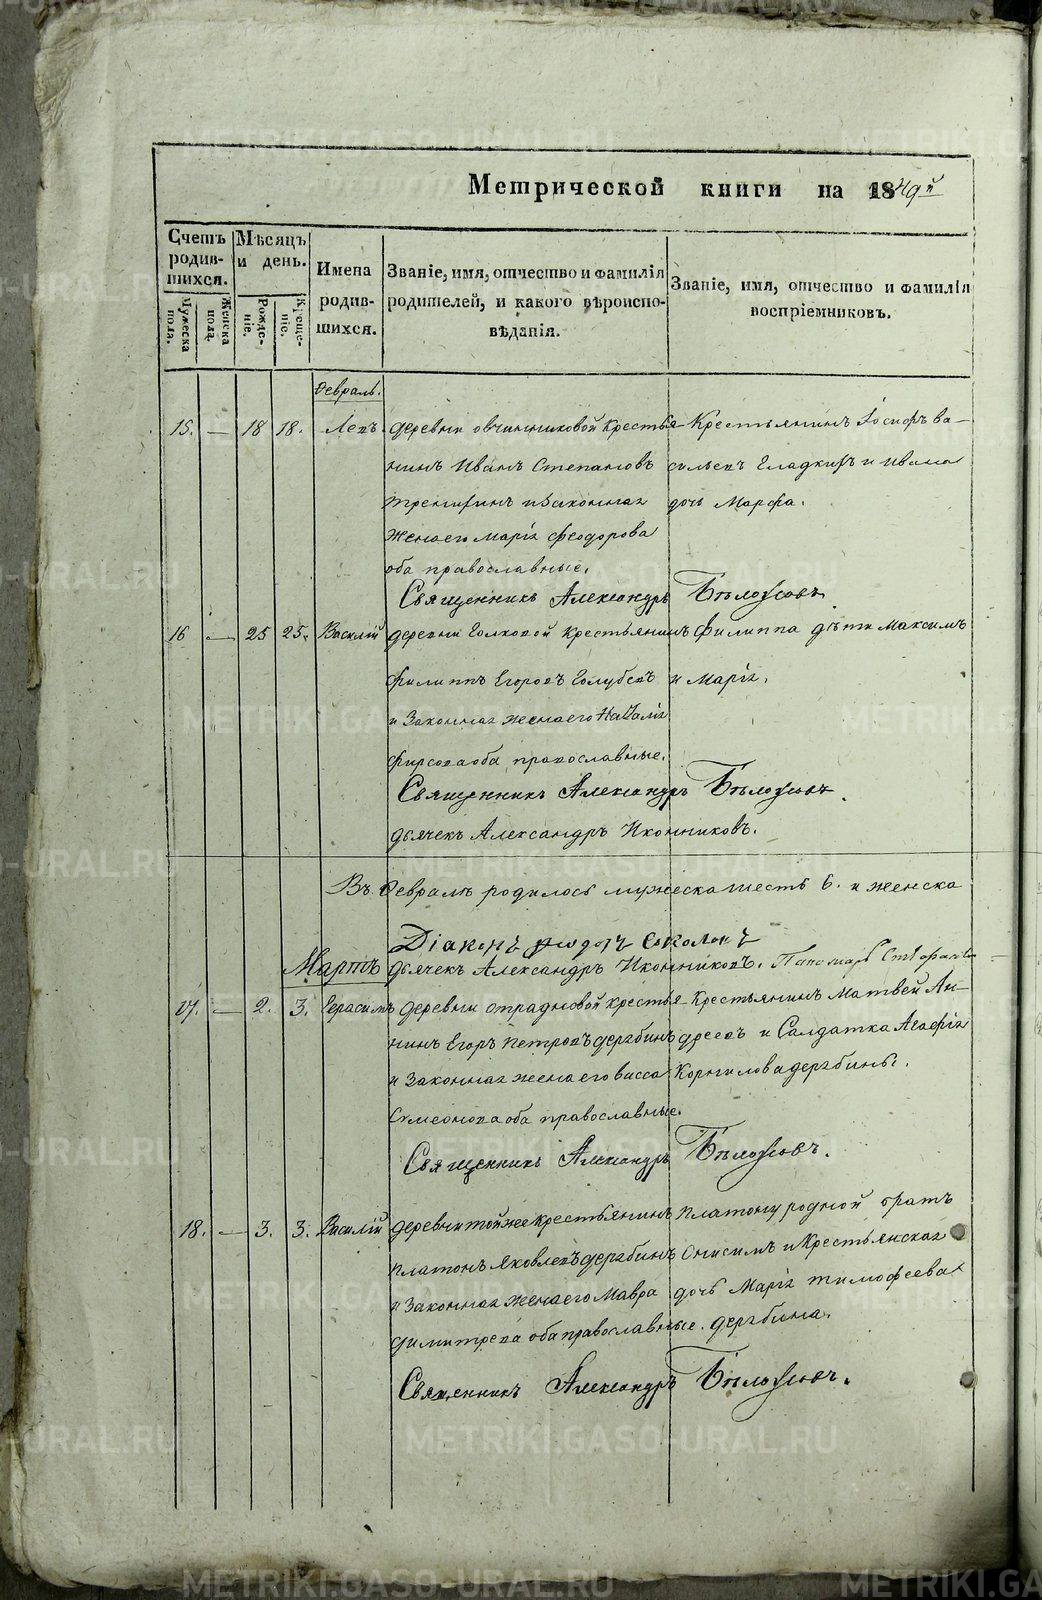 Метрической книги на 1849й
Счетъ родив-шихся.
Мѣсяцъ и день.
Имена родив-шихся.
Званіе, имя, отчество и фамилія родителей, и какого вѣроиспо-вѣданія.
Званіе, имя, отчество и фамилія воспріемниковъ.
Мужеска пола.
Женска пола.
Рожде-ніе.
Креще-ніе.
Февраль.
15. — 18 18. Левъ деревни овчинниковой Крестья- Крестьянинъ Іосифъ ва-
нинъ Иванъ Степановъ сильевъ Гладкихъ и Ивана
и законная дочь Марфа.
жена его Марія Феодорова
оба православные.
Священникъ Александръ Бѣлоусовъ
16 — 25 25. Василій деревни Крестьянинъ Филиппа дѣти Максимъ
Филиппъ Егоровъ Голубевъ и Марія.
и Законная жена его Наталія
Фирсова оба православные.
Священникъ Александръ Бѣлоусовъ.
дьячекъ Александръ Иконниковъ.
Въ Февралѣ родилось мужеска шесть 6. и женска
Діаконъ Соколовъ
Мартъ дьячекъ Александръ Иконниковъ. Пономарь
17. — 2. 3. Герасимъ деревни отрадновой крестья- Крестьянинъ Матвей Ан-
нинъ Егоръ Петровъ дерябинъ дреевъ и Салдатка Агафія
и Законная жена его васса Корнилова дерябины.
Симеонова оба православные.
Священникъ Александръ Бѣлоусовъ.
18. — 3. 3. Василій деревни тойже крестьянинъ Платону родной братъ
платонъ Яковлевъ дерябинъ Онисимъ и Крестьянская
и Законная жена его Мавра дочь Марія тимофеева
димитрева оба православные. дерябина.
Священникъ Александръ Бѣлоусовъ.
METRIKI.GASO-URAL.RU